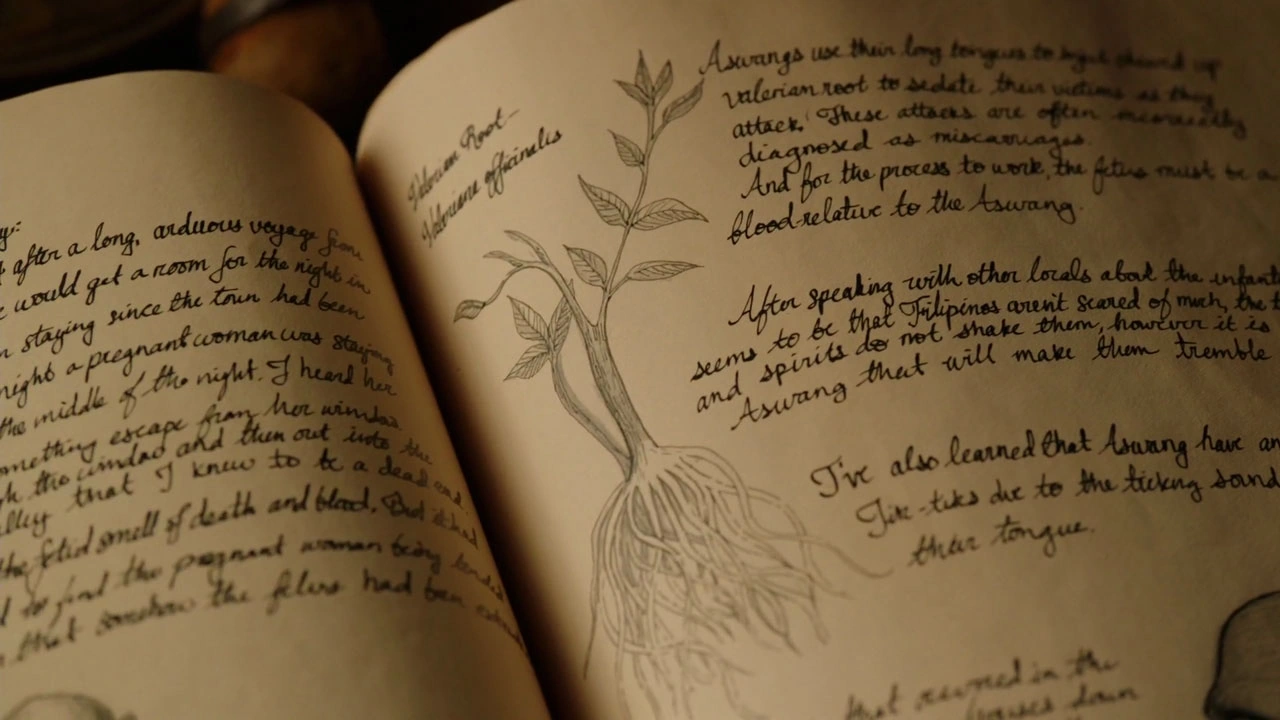 y:
after a long, arduous voyage from
would get a room for the night in
staying since the town had been
night a pregnant woman was staying
the middle of the night. I heard her
omething escape from her window.
the window and then out into the
lley that I knew to be a dead end.
the fetid smell of death and blood. But
find the pregnant woman being
that somehow the fetus had been
Valerian Root-
Valeriana officinalis
Aswangs use their long tongues to up
valerian root to sedate their victims as they
attack. These attacks are often
diagnosed as miscarriages.
And for the process to work, the fetus must be a
blood relative to the Aswang.
After speaking with other locals about the infant
seems to be that Filipinos aren't scared of much, the
and spirits do not shake them, however it is
Aswang that will make them tremble
I've also learned that Aswang have an
Tik-tiks due to the ticking sound
their tongue.
that in the
down